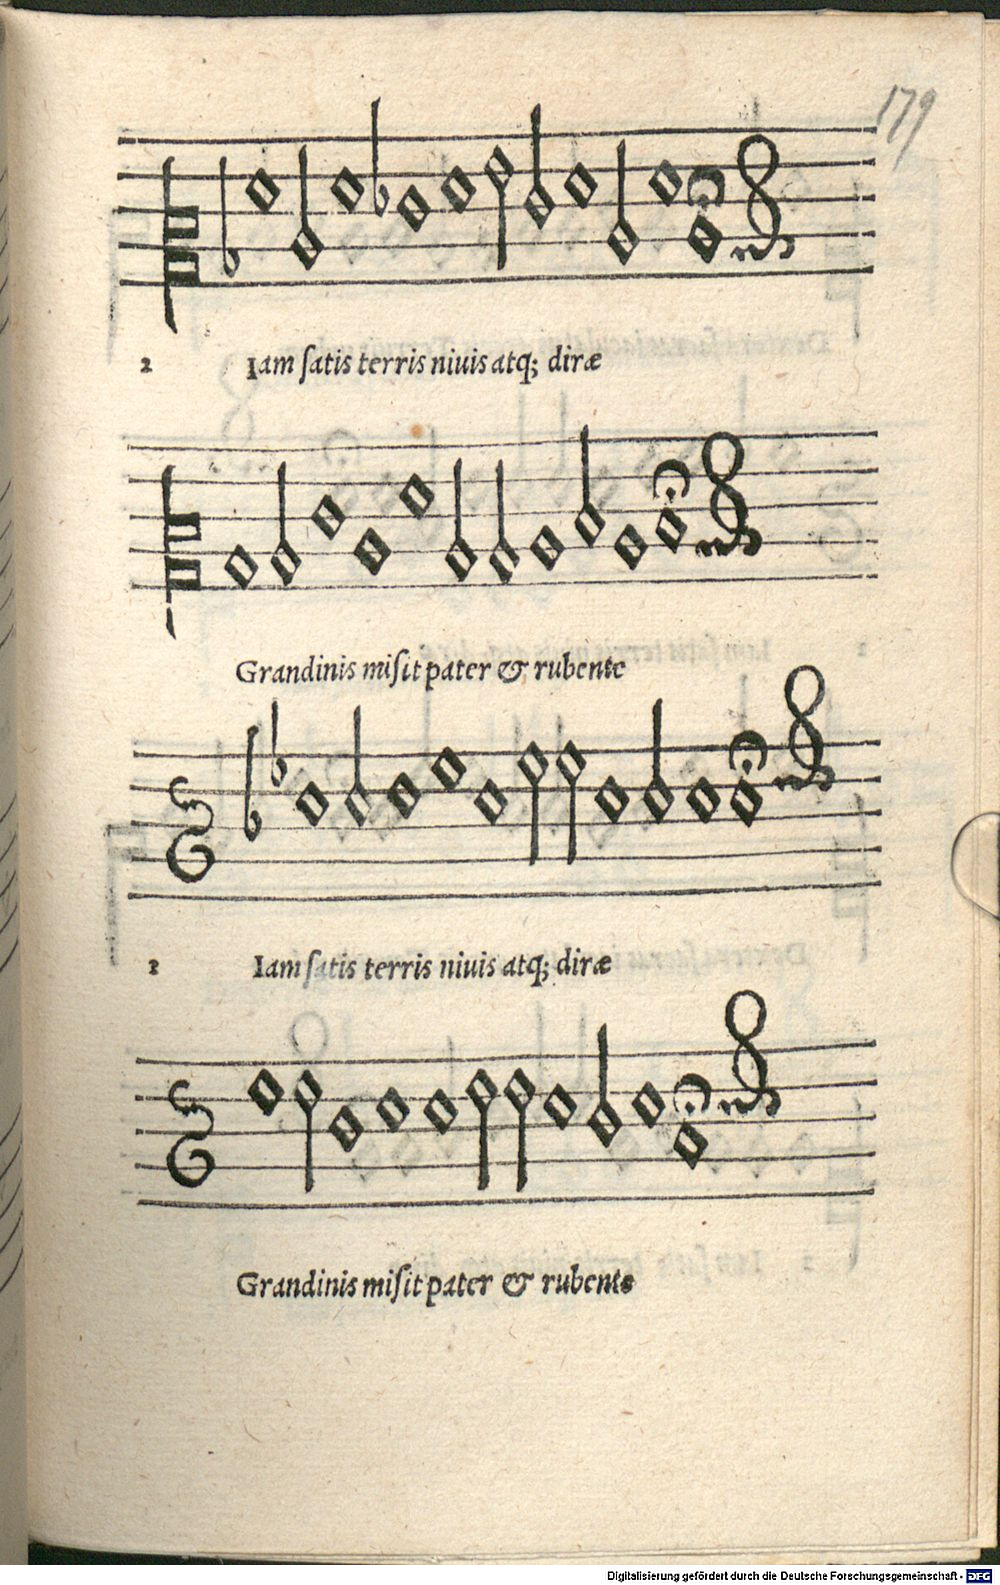 179
2 Iam ſatis terris niuis atq; diræ
Grandinis miſit pater & rubente
2 Iam ſatis terris niuis atq; diræ
Grandinis miſit pater & rubente
Digitalisierung gefördert durch die Deutsche Forschungsgemeinschaft - DFG